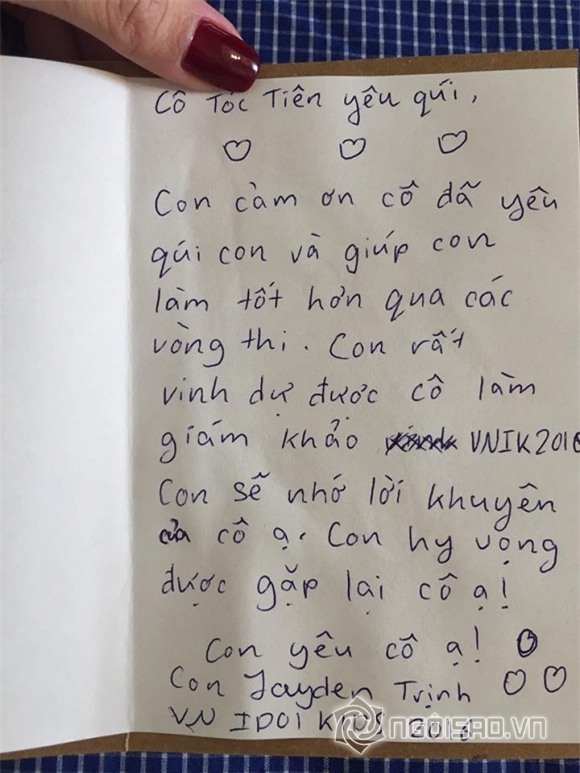 Cô Tóc Tiên yêu qúi,
Con cảm ơn cô đã yêu
qúi con và giúp con
làm tốt hơn qua các
vòng thi. Con rất
vinh dự được cô làm
giám khảo VNIK 2016
Con sẽ nhớ lời khuyên
của cô ạ. Con hy vọng
được gặp lại cô ạ!
Con yêu cô ạ!
Con Jayden Trịnh
VN IDOl KIDS 2016
NGÔISAO.VN